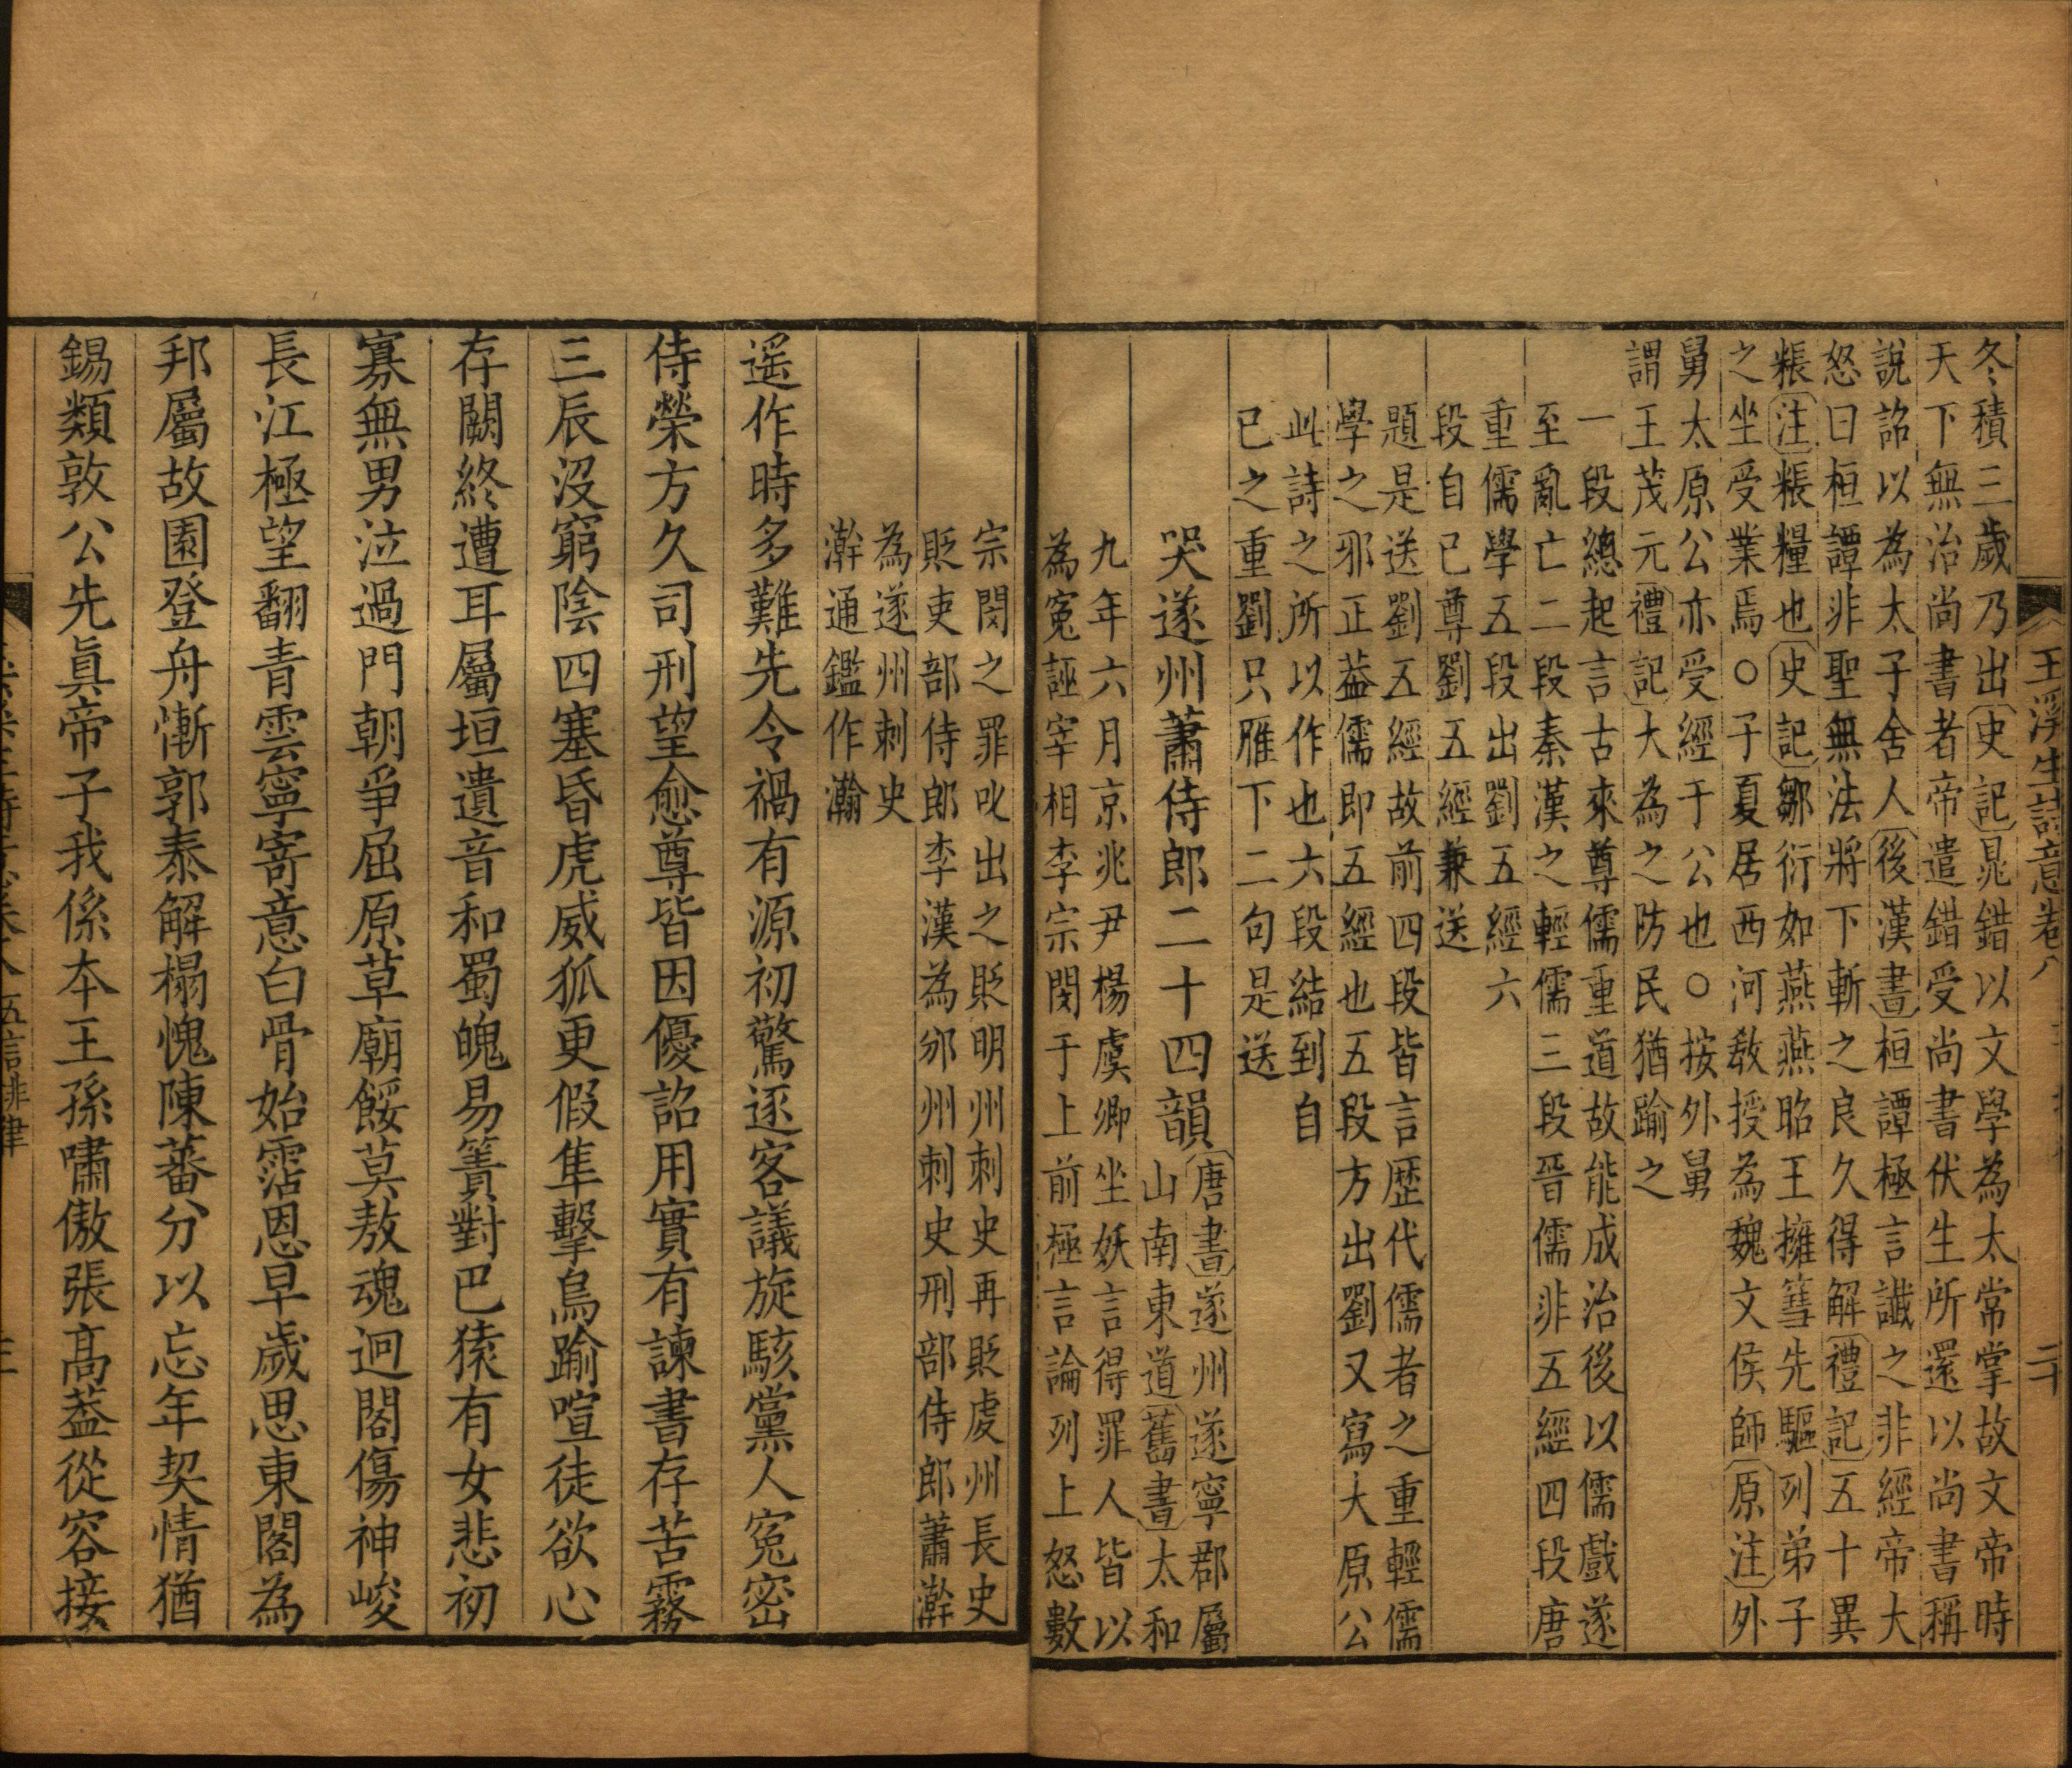 玉溪生詩意卷八
二十
冬積三歲乃出史記晁錯以文學為太常掌故文帝時
天下無治尚書者帝遣錯受尚書伏生所還以尚書稱
說詔以為太子舍人後漢書桓譚極言讖之非經帝大
怒曰桓譚非聖無法將下斬之良久得解禮記五十異
粻注粻糧也史記鄒衍如燕燕昭王擁篲先驅列弟子
之坐受業焉○子夏居西河教授為魏文侯師原注外
舅太原公亦受經于公也○按外舅
謂王茂元禮記大為之防民猶踰之
一段總起言古來尊儒重道故能成治後以儒戲遂
至亂亡二段秦漢之輕儒三段晉儒非五經四段唐
重儒學五段出劉五經六
段自己尊劉五經兼送
題是送劉五經故前四段皆言歷代儒者之重輕儒
學之邪正葢儒即五經也五段方出劉又寫大原公
此詩之所以作也六段結到自
已之重劉只雁下二句是送
哭遂州蕭侍郎二十四韻
唐書遂州遂寧郡屬
山南東道舊書太和
九年六月京兆尹楊虞卿坐妖言得罪人皆以
為寃誣宰相李宗閔于上前極言論列上怒數
宗閔之罪叱出之貶明州刺史再貶虔州長史
貶吏部侍郎李漢為邠州刺史刑部侍郎蕭澣
為遂州刺史
澣通鑑作瀚
遥作時多難先令禍有源初驚逐客議旋駭黨人寃密
侍榮方久司刑望愈尊皆因優詔用實有諫書存苦霧
三辰沒窮陰四塞昏虎威狐更假隼擊鳥踰喧徒欲心
存闕終遭耳屬垣遺音和蜀魄易簀對巴猿有女悲初
寡無男泣過門朝爭屈原草廟餒莫敖魂迥閣傷神峻
長江極望翻青雲寧寄意白骨始霑恩早歲思東閣為
邦屬故園登舟慚郭泰解榻愧陳蕃分以忘年契情猶
錫類敦公先眞帝子我係本王孫嘯傲張高葢從容接
五言排律